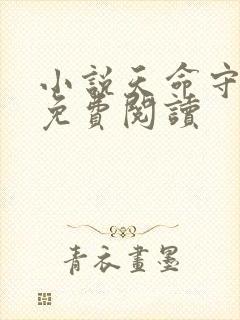 小說天命守
免費閱讀
青衣畫墨